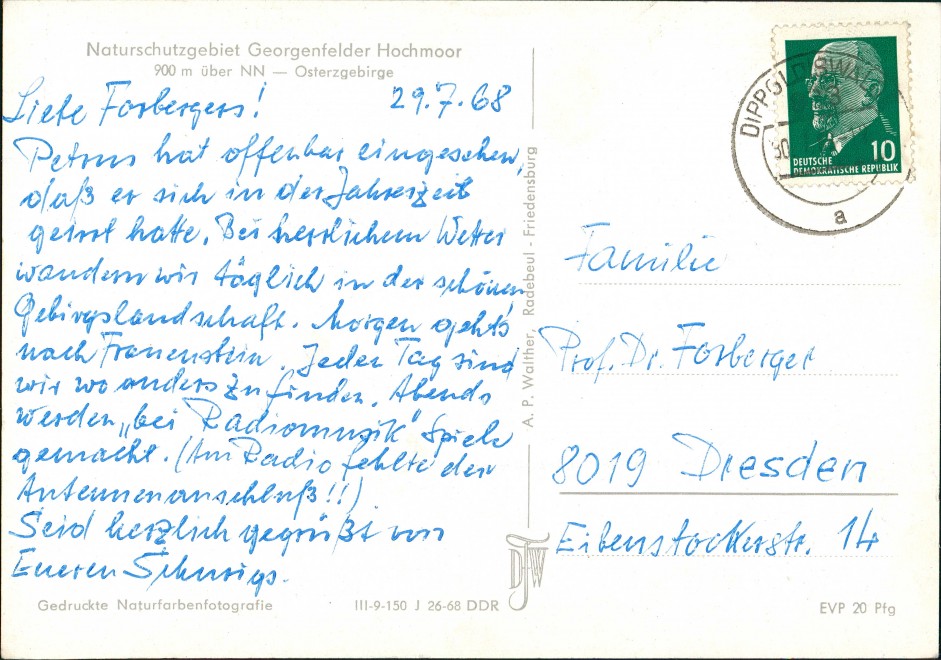 Naturschutzgebiet Georgenfelder Hochmoor
900 m über NN — Osterzgebirge
Liebe Forbergers! 29.7.68
Petrus hat offenbar eingesehen,
daß er sich in der Jahreszeit
geirrt hatte. Bei herrlichem Wetter
wandern wir täglich in der schönen
Gebirgslandschaft. Morgen gehts
nach Frauenstein. Jeden Tag sind
wir wo anders zu finden. Abends
werden „bei Radiomusik" Spiele
gemacht. (Am Radio fehlte der
Antennenanschluß!!)
Seid herzlich gegrüßt von
Eueren Schurigs.
Gedruckte Naturfarbenfotografie
III-9-150 J 26-68 DDR
A. P. Walther, Radebeul - Friedensburg
DFW
DIPPOLDISWALDE
30
a
10
DEUTSCHE
DEMOKRATISCHE REPUBLIK
Familie
Prof. Dr. Forberger
8019 Dresden
Eibenstockerstr. 14
EVP 20 Pfg